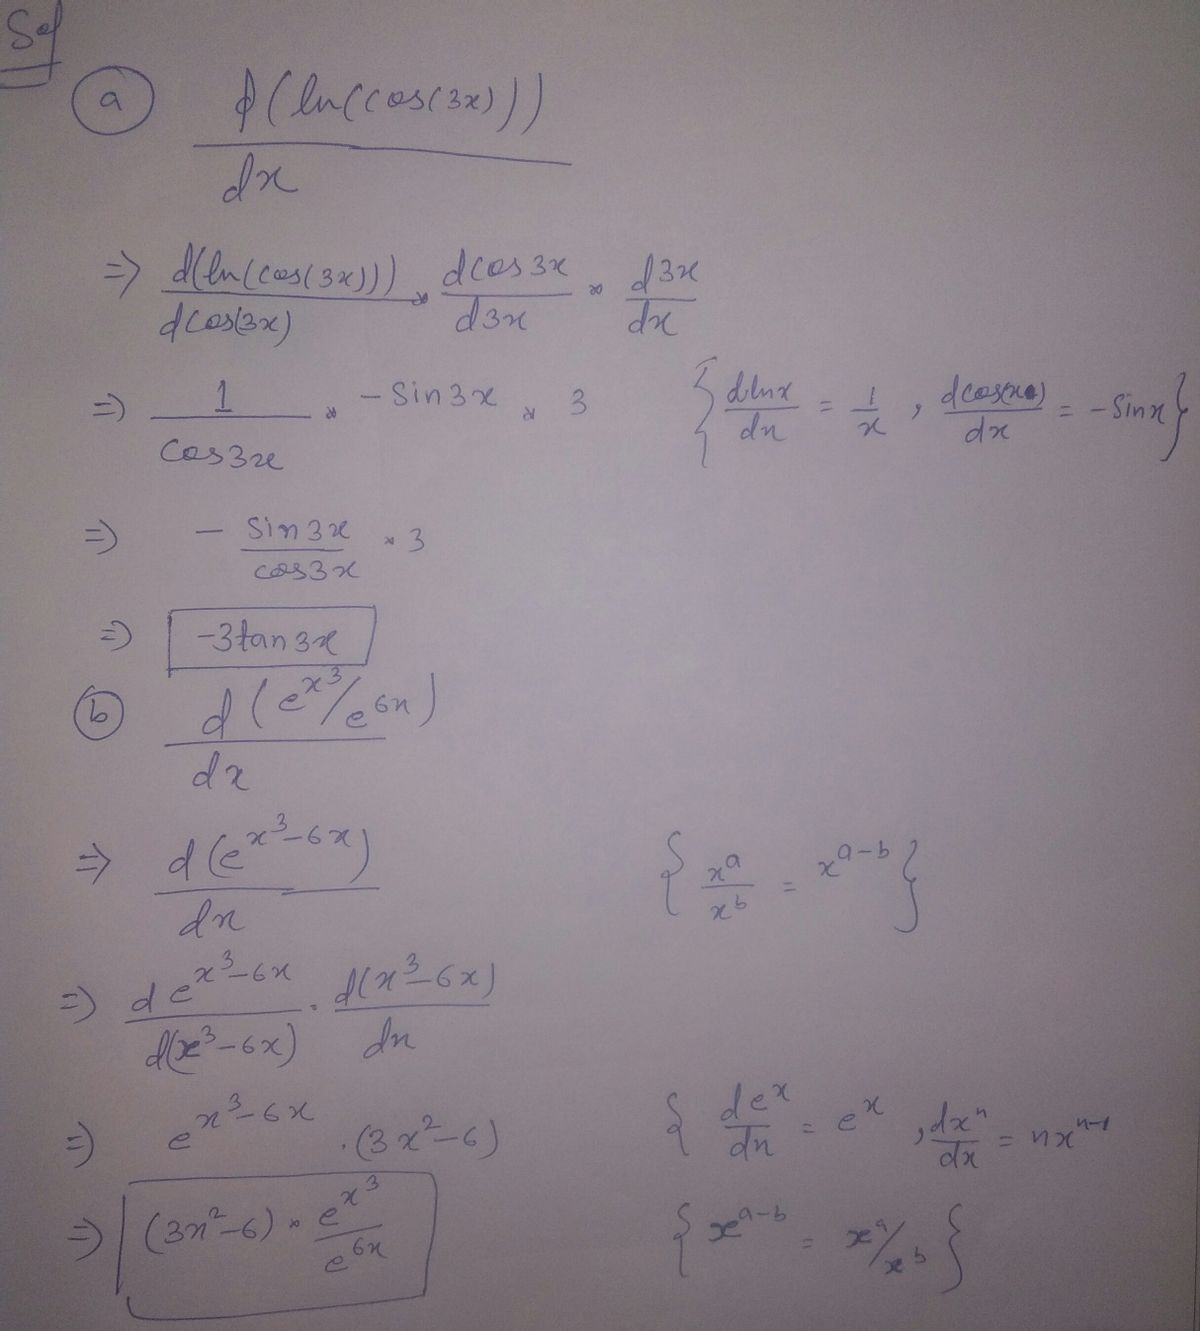 Sol
(a) d(ln(cos(3x))) / dx
=> d(ln(cos(3x))) / dcos(3x) * dcos3x / d3x * d3x / dx
=> 1 / cos3x * -Sin3x * 3 { dlnx/dx = 1/x , dcos(x)/dx = -Sinx }
=> - Sin3x / cos3x * 3
=> -3tan3x
(b) d(e^x^3/e^6x) / dx
=> d(e^(x^3-6x)) / dx { x^a / x^b = x^(a-b) }
=> de^(x^3-6x) / d(x^3-6x) . d(x^3-6x) / dx
=> e^(x^3-6x) .(3x^2-6) { de^x/dx = e^x , dx^n/dx = nx^(n-1)
=> (3x^2-6) * e^x^3 / e^6x { x^(a-b) = x^a/x^b }